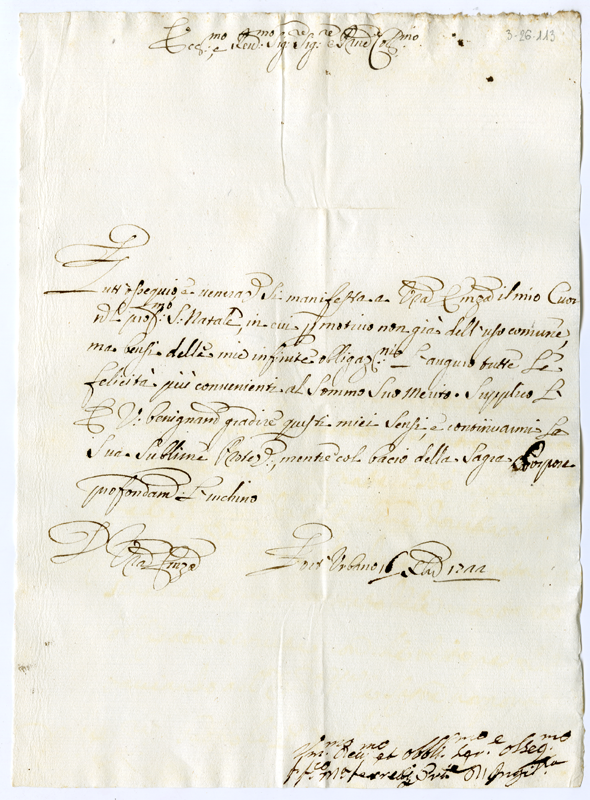 3-26-113
Em.mo e Rev.mo Sig.re Sig.re e P.rone Col.mo
Tutt'ossequio e venera.ne si manifesta a V.ra Em.za il mio Cuor
nel pros.mo S. Natale, in cui p motivo non già dell'uso comune,
ma bensì delle mie infinite obligaz.ni L'auguro tutte Le
felicità più convenienti al Sommo Suo Merito. Supplico L'
E. V. benignam.e gradire questi miei Sensi, e continuarmi La
Sua Sublime Protez.e, mentre col bacio della Sagra Porpora
profondam.e L'inchino
D V.ra Em.za
Fort Urbano 16
Um.mo Dev.mo et obblig.mo ser.e osseq.mo